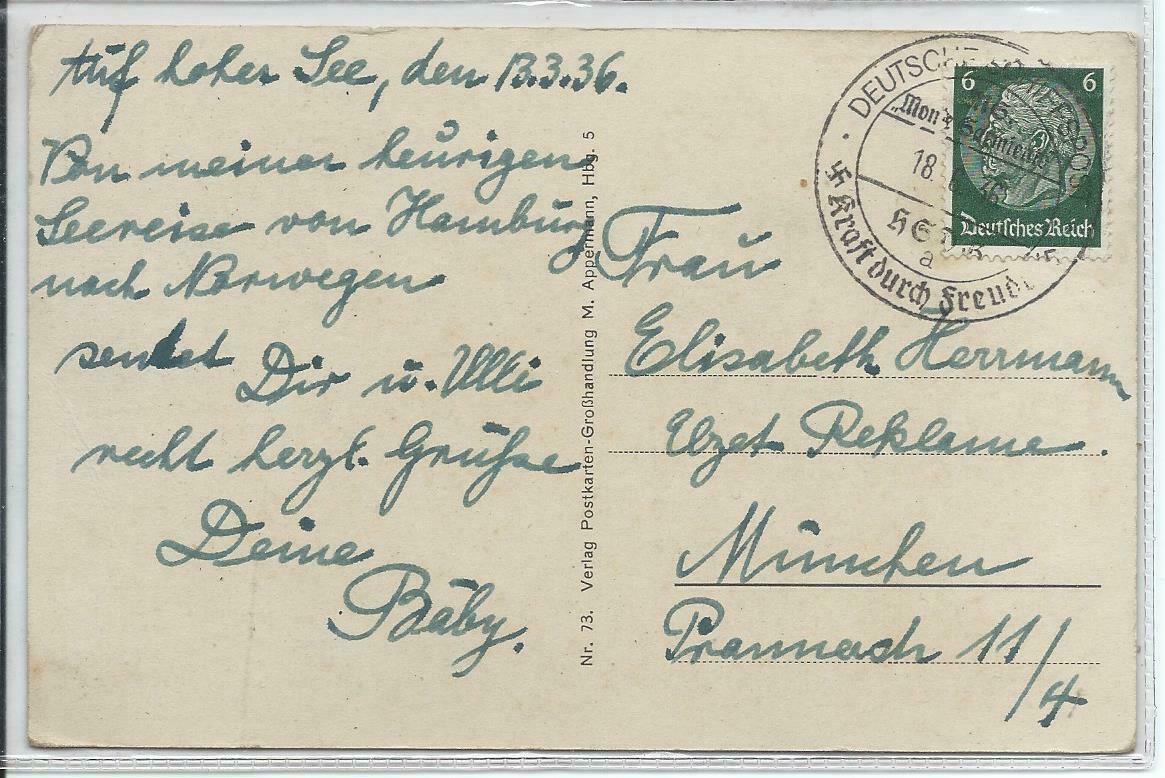 Auf hoher See, den 13.3.36.
Von meiner heurigen
Seereise von Hamburg
nach Norwegen
sendet
Dir u. Ulli
recht herzl. Grüße
Deine
Bäby.
Nr. 73. Verlag Postkarten-Großhandlung M. Appermann, Hbg. 5
DEUTSCHE
18.
a
Kraft durch Freude
6 6
Deutsches Reich
Frau
Elisabeth Herrmann
Uzet Reklame.
München
Prannach 11/4